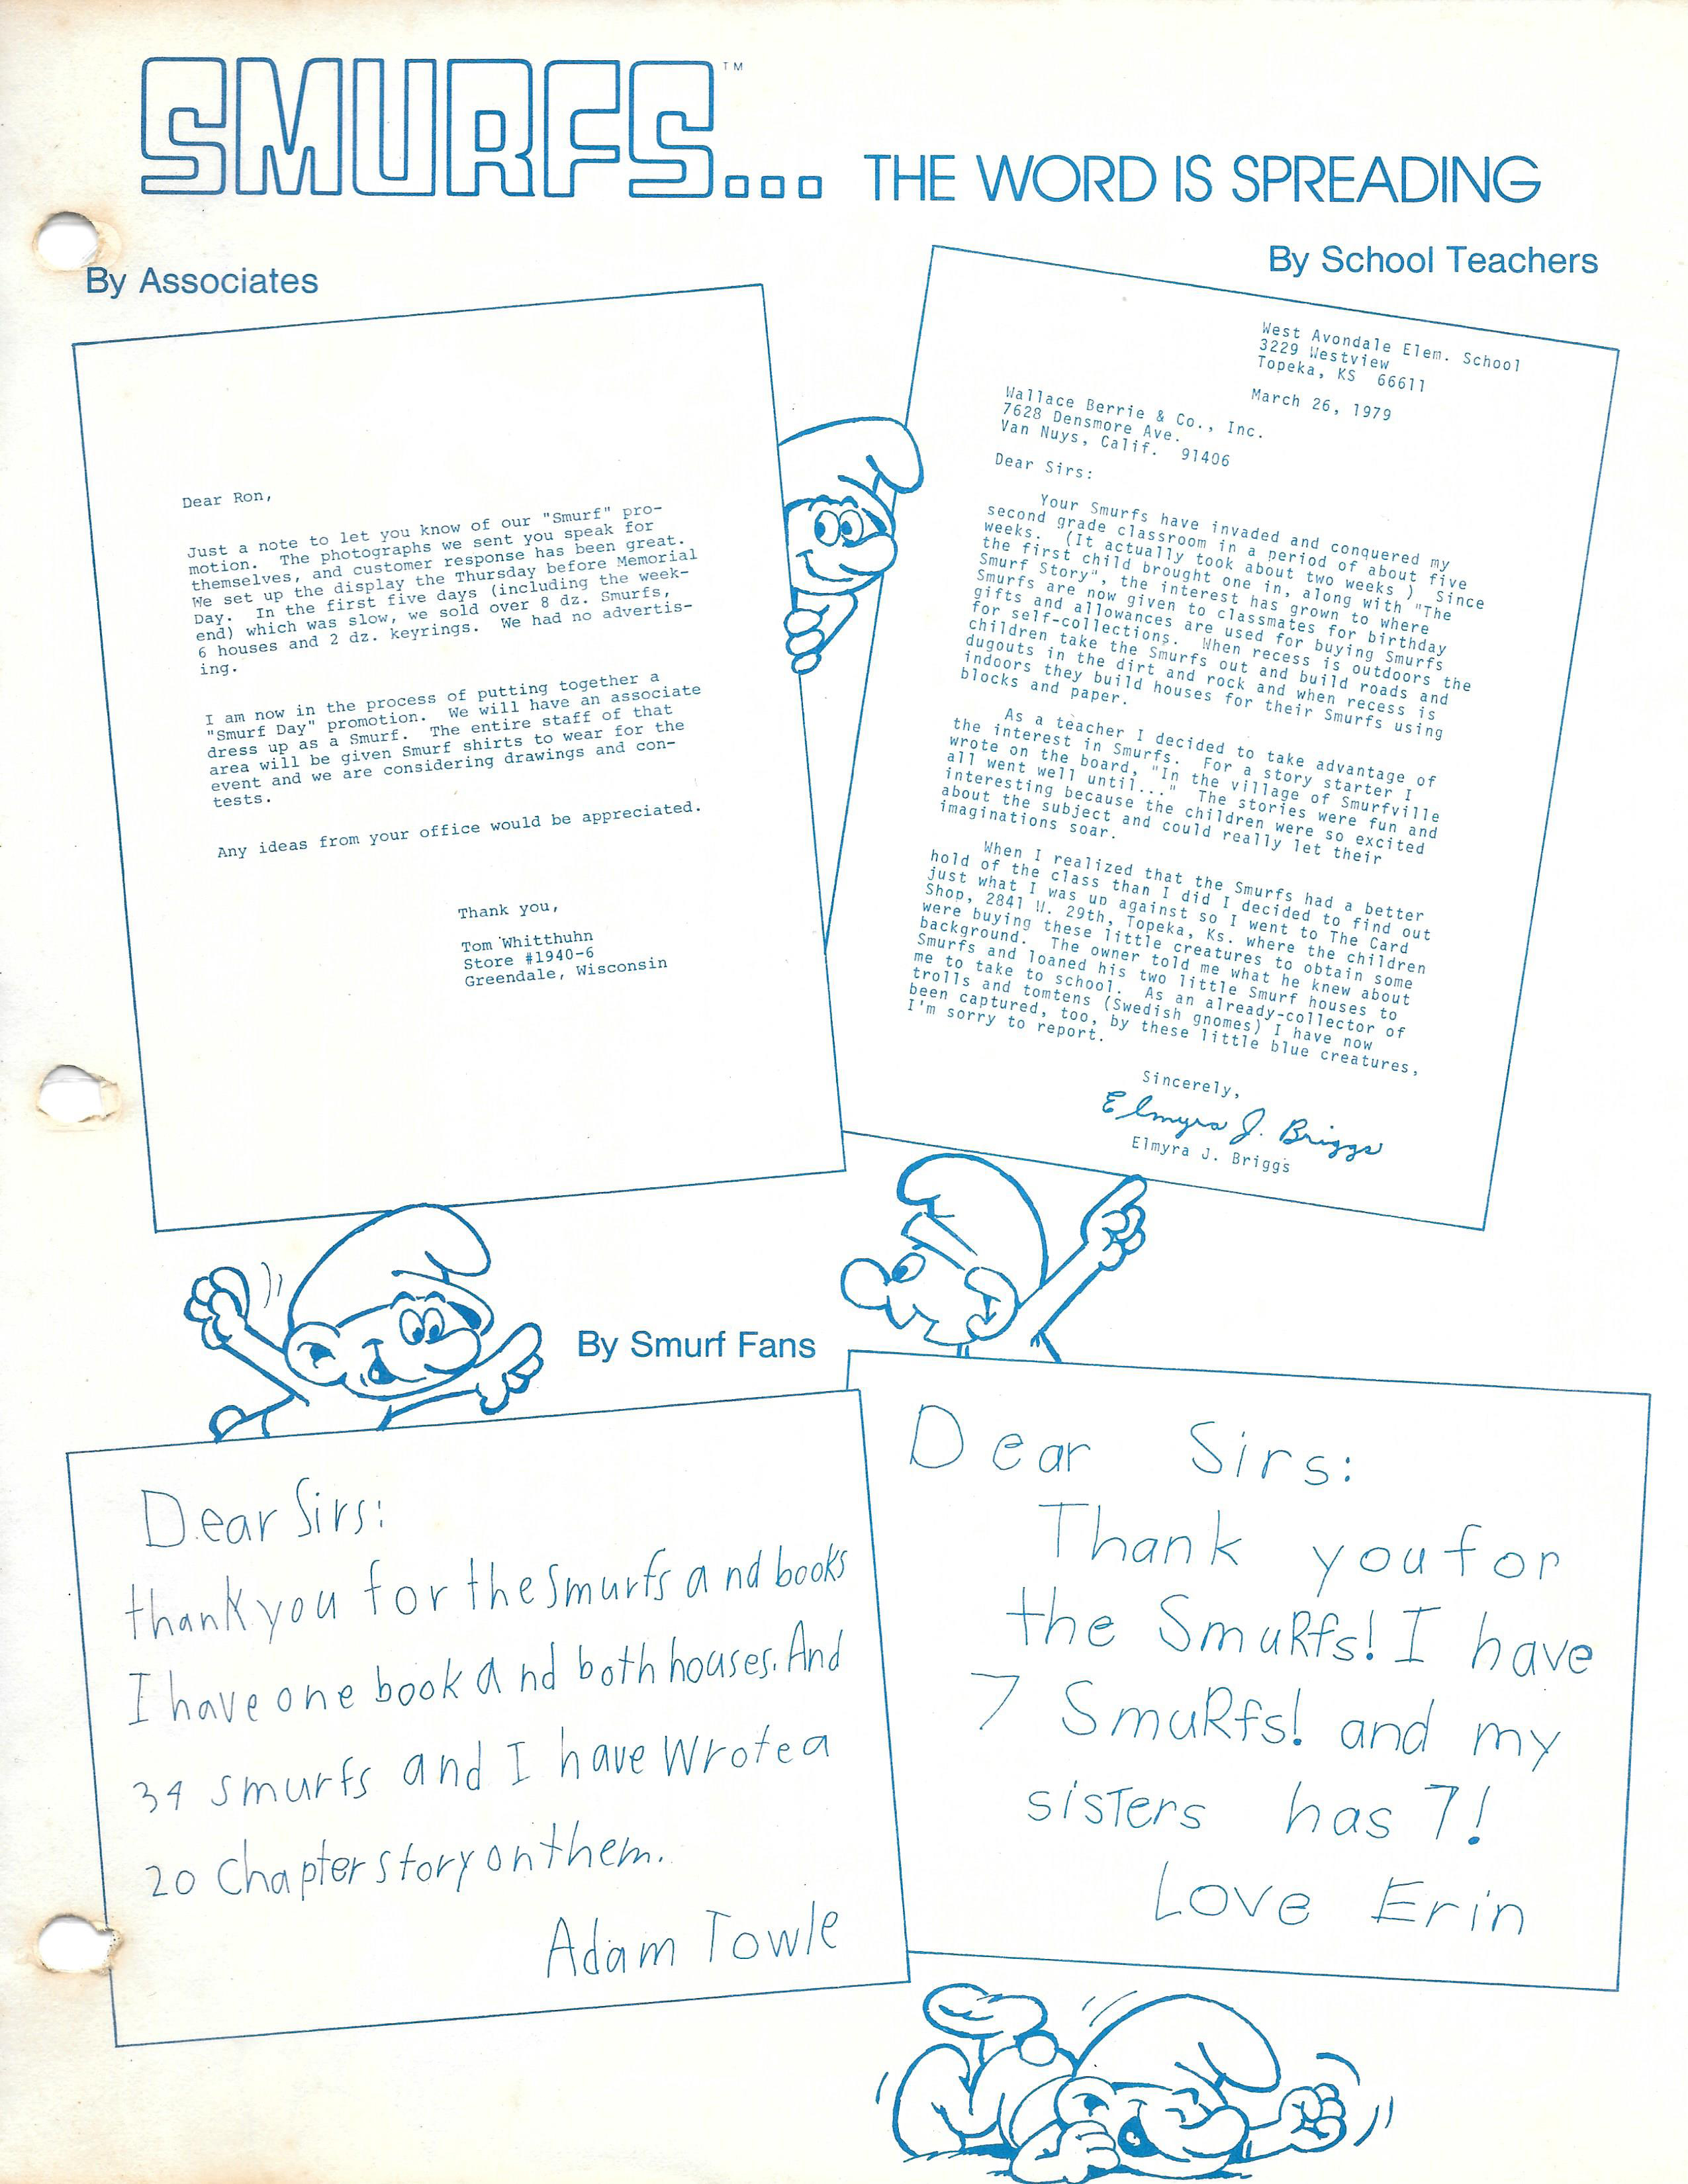 SMURFS™... THE WORD IS SPREADING
By Associates
Dear Ron,
Just a note to let you know of our "Smurf" pro-
motion. The photographs we sent you speak for
themselves, and customer response has been great.
We set up the display the Thursday before Memorial
Day. In the first five days (including the week-
end) which was slow, we sold over 8 dz. Smurfs,
6 houses and 2 dz. keyrings. We had no advertis-
ing.
I am now in the process of putting together a
"Smurf Day" promotion. We will have an associate
dress up as a Smurf. The entire staff of that
area will be given Smurf shirts to wear for the
event and we are considering drawings and con-
tests.
Any ideas from your office would be appreciated.
Thank you,
Tom Whitthuhn
Store #1940-6
Greendale, Wisconsin
By School Teachers
West Avondale Elem. School
3229 Westview
Topeka, KS 66611
March 26, 1979
Wallace Berrie & Co., Inc.
7628 Densmore Ave.
Van Nuys, Calif. 91406
Dear Sirs:
Your Smurfs have invaded and conquered my
second grade classroom in a period of about five
weeks. (It actually took about two weeks ) Since
the first child brought one in, along with "The
Smurf Story", the interest has grown to where
Smurfs are now given to classmates for birthday
gifts and allowances are used for buying Smurfs
for self-collections. When recess is outdoors the
children take the Smurfs out and build roads and
dugouts in the dirt and rock and when recess is
indoors they build houses for their Smurfs using
blocks and paper.
As a teacher I decided to take advantage of
the interest in Smurfs. For a story starter I
wrote on the board, "In the village of Smurfville
all went well until..." The stories were fun and
interesting because the children were so excited
about the subject and could really let their
imaginations soar.
When I realized that the Smurfs had a better
hold of the class than I did I decided to find out
just what I was up against so I went to The Card
Shop, 2841 W. 29th, Topeka, Ks. where the children
were buying these little creatures to obtain some
background. The owner told me what he knew about
Smurfs and loaned his two little Smurf houses to
me to take to school. As an already-collector of
trolls and tomtens (Swedish gnomes) I have now
been captured, too, by these little blue creatures,
I'm sorry to report.
Sincerely,
Elmyra J. Briggs
Elmyra J. Briggs
By Smurf Fans
Dear Sirs:
thank you for the Smurfs and books
I have one book and both houses. And
34 smurfs and I have wrote a
20 Chapter story on them.
Adam Towle
Dear Sirs:
Thank you for
the SmuRfs! I have
7 SmuRfs! and my
sisTers has 7!
Love Erin